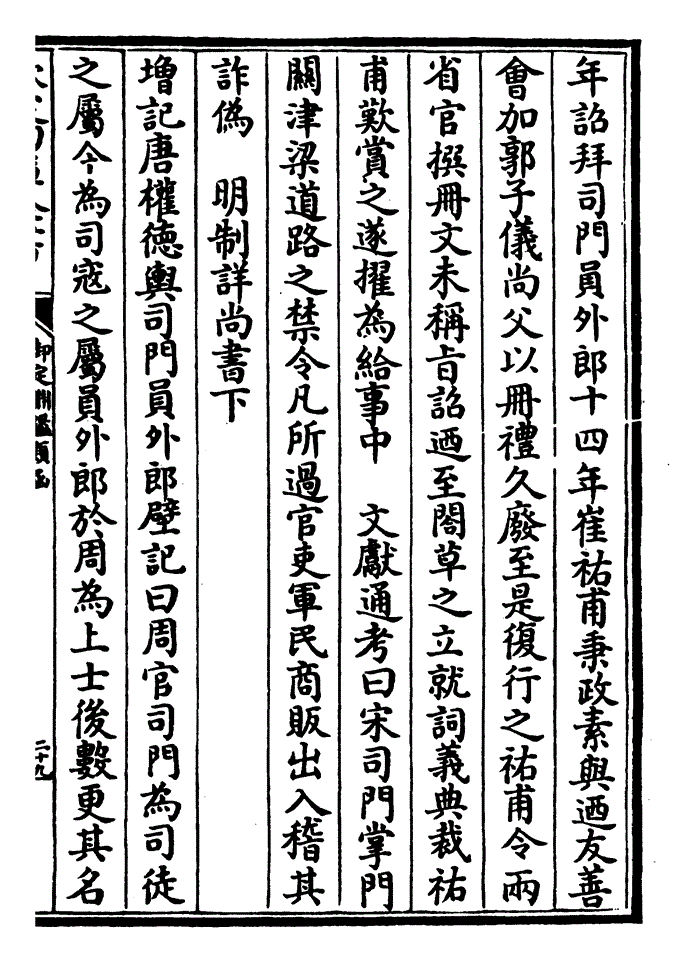 年詔拜司門員外郎十四年崔祐甫秉政素與迺友善
會加郭子儀尚父以冊禮久廢至是復行之祐甫令兩
省官撰冊文未稱旨詔迺至閤草之立就詞義典裁祐
甫歎賞之遂擢為給事中　文獻通考曰宋司門掌門
關津梁道路之禁令凡所過官吏軍民商販出入稽其
詐偽　明制詳尚書下
增記唐權德輿司門員外郎壁記曰周官司門為司徒
之屬今為司寇之屬員外郎於周為上士後數更其名
御定淵鑑類函
二十九